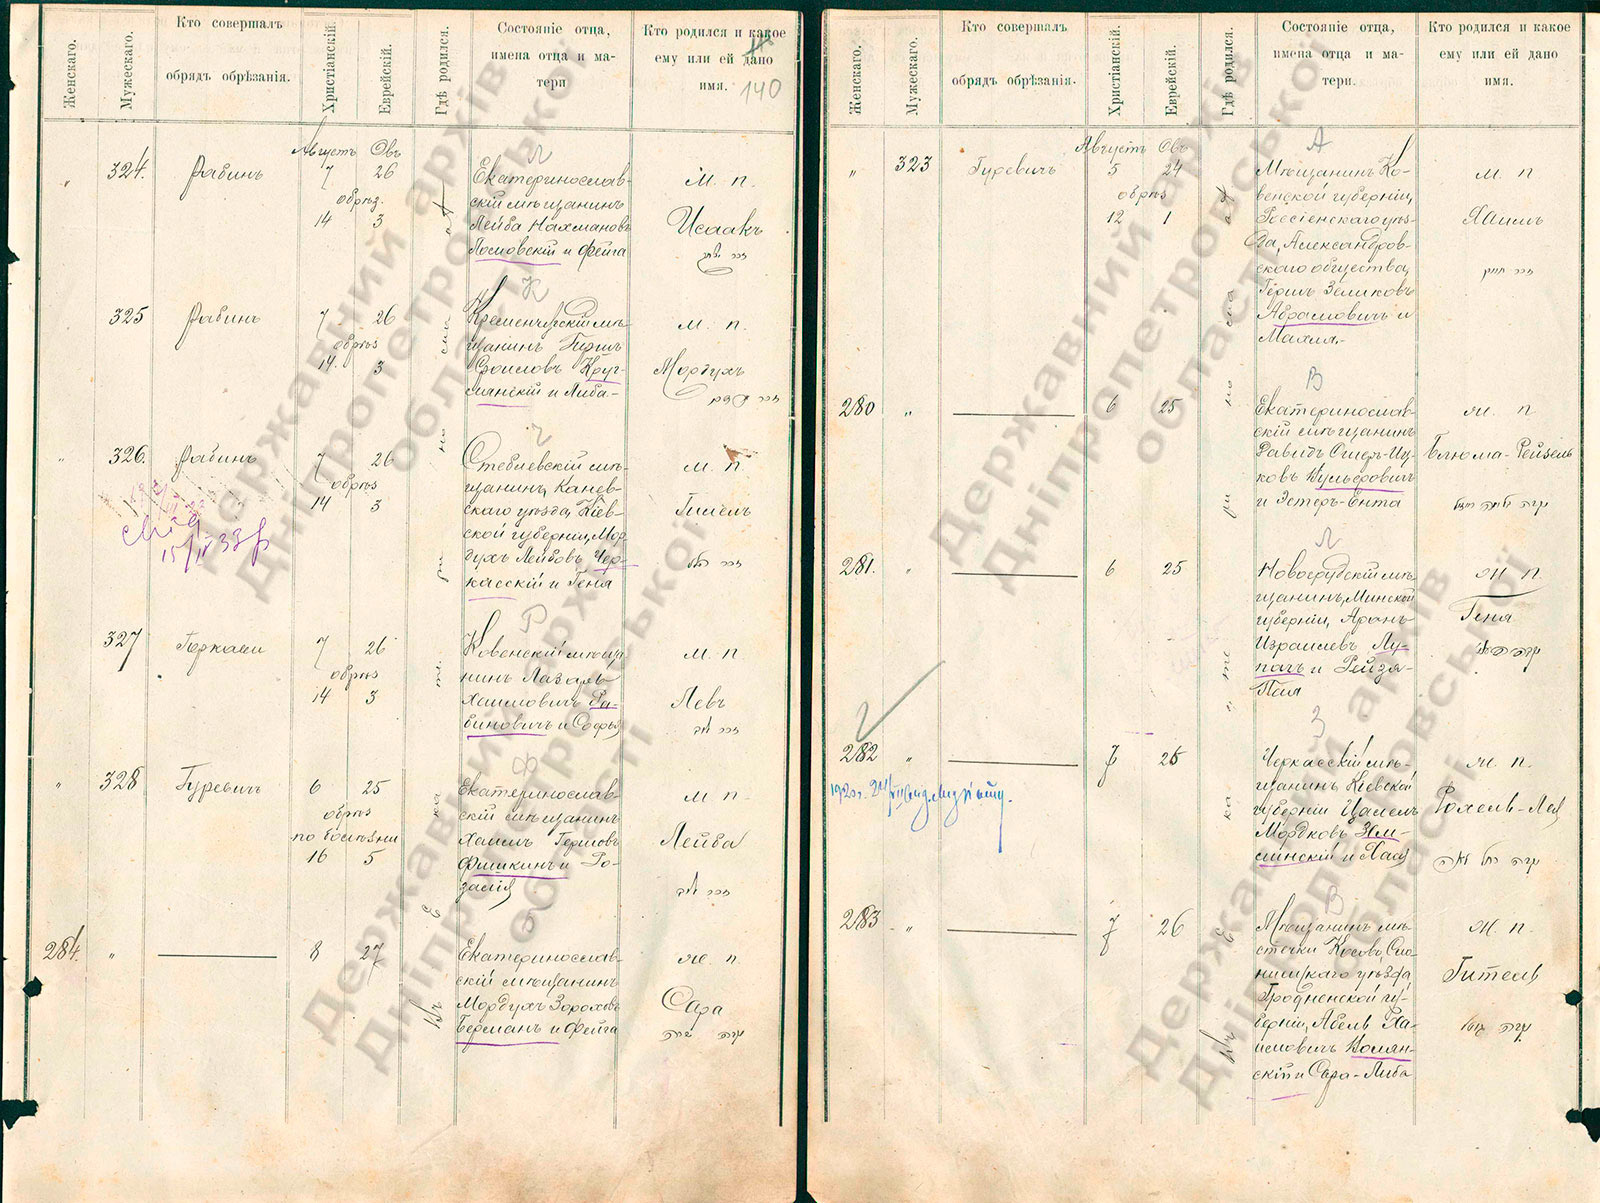 Женскаго.
Мужескаго.
Кто совершалъ
обрядъ обрѣзанія.
Христіанскій.
Еврейскій.
Гдѣ родился.
Состояніе отца,
имена отца и ма-
тери
Кто родился и какое
ему или ей дано
имя.
140
Августъ Овъ
„ 324. Рабинъ 7 26
обрѣз.
14 3
Екатеринослав-
скій мѣщанинъ
Лейба Нахмановъ
и Фейга
м. п.
Исаакъ
325 Рабинъ 7 26
обрѣз
14. 3
Кременчугскій мѣ-
щанинъ Гирш
Круг-
лянскій и Либа-
м. п.
Мордухъ
„ 326. Рабинъ 7 26
обрѣз
14 3
15/IV 33
Стеблевскій мѣ-
щанинъ, Канев-
скаго уѣзда, Кіев-
ской губерніи, Мор-
духъ Лейбовъ Чер-
касскій и Геня
м. п.
Гилель
327 7 26
обрѣз
14 3
Ковенскій мѣща
нинъ Лазарь
Хаимовичъ Ра-
биновичъ и Софья
м. п.
Левъ
„ 328 Гуревичъ 6 25
обрѣз
по болѣзни
16 5
Екатеринослав-
скій мѣщанинъ
Хаимъ Гершовъ
Фишкинъ и Ро-
залія
м. п.
Лейба
284. „ 8 27
Екатеринослав-
скій мѣщанинъ
Мордухъ Зораховъ
Берманъ и Фейга
ж. п.
Сара
Женскаго.
Мужескаго.
Кто совершалъ
обрядъ обрѣзанія.
Христіанскій.
Еврейскій.
Гдѣ родился.
Состояніе отца,
имена отца и ма-
тери.
Кто родился и какое
ему или ей дано
имя.
Августъ Овъ
„ 323 Гуревичъ 5 24
обрѣз
12 1
А
Мѣщанинъ Ко-
венской губерніи,
Россіенскаго уѣз-
да, Александров-
скаго общества,
Гершъ Зеликовъ
Абрамовичъ и
м. п
Хаимъ
280 „ 6 25
В
Екатеринослав-
скій мѣщанинъ
Вульфовичъ
и Эстеръ-Ента
ж. п
Блюма-Рейзель
281. „ 6 25
Л
Новогрудскій мѣ-
щанинъ, Минской
губерніи, Аронъ
Израилевъ Лу-
пачъ и Рейзя-
Песя
ж п.
Геня
282 „ 7 26
З
Черкасскій мѣ-
щанинъ Кіевской
губерніи
Мордковъ Зем-
лянскій и Хая
ж. п.
Рохель-Лея
283 „ 7 26
В
Мѣщанинъ мѣ-
стечка Косова, Сло-
нимскаго уѣзда
Гродненской гу-
берніи, Абель Ха-
имовичъ Волян-
скій и Сара-Либа
ж. п.
Гитель
Державний архів
Дніпропетровської
області